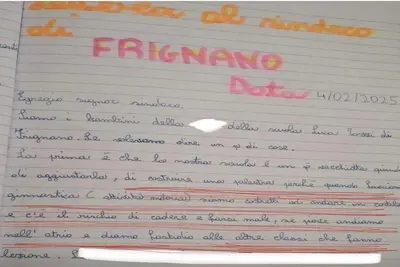 al sindaco
di
FRIGNANO
Data 4/02/2025
Egregio signor sindaco.
Siamo i bambini della della scuola Luca Tozzi di
Frignano. Le volevamo dire un pò di cose.
La prima è che la nostra scuola è un pò vecchiotta quindi
di aggiustarla, di costruire una palestra perchè quando facciamo
ginnastica ( attività motoria) siamo costretti ad andare in cortile
e c'è il rischio di cadere e farci male, se piove andiamo
nell' atrio e diamo fastidio alle altre classi che fanno
lezione.